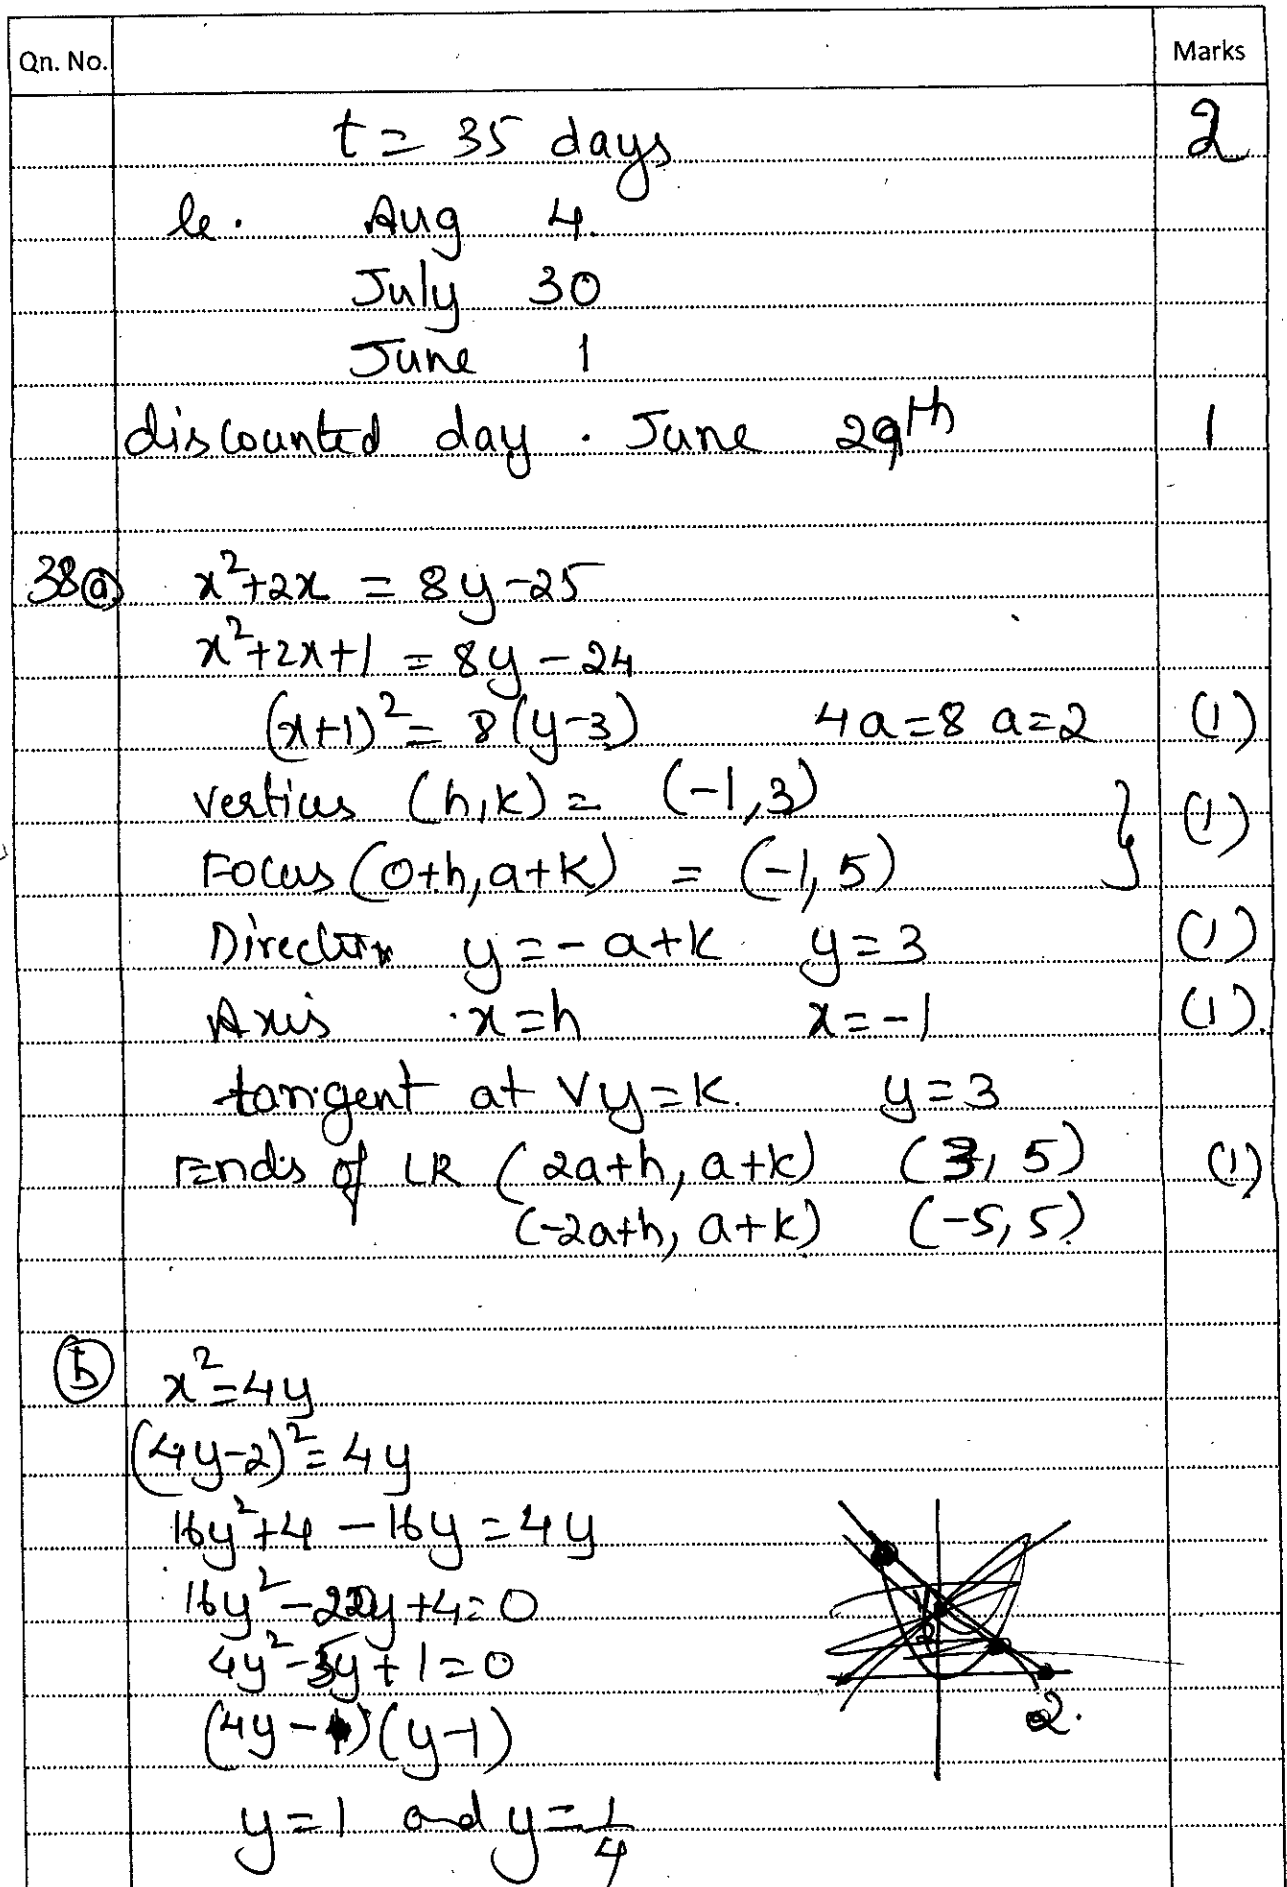 Qn. No. Marks
t = 35 days 2
ie. Aug 4.
July 30
June 1
discounted day . June 29th 1
38 ⓐ x²+2x = 8y-25
x²+2x+1 = 8y - 24
(x+1)² = 8(y-3) 4a=8 a=2 (1)
vertius (h,k) = (-1,3)
Focus (0+h, a+k) = (-1, 5) } (1)
Directrix y = -a+k y=3 (1)
Axis x=h x=-1 (1).
tangent at V y=k. y=3
Ends of LR (2a+h, a+k) (3, 5) (1)
(-2a+h, a+k) (-5, 5)
ⓑ x²=4y
(4y-2)²=4y
16y²+4 - 16y = 4y
16y²-20y+4=0
4y²-5y+1=0
(4y-1)(y-1)
2.
y=1 and y=1/4